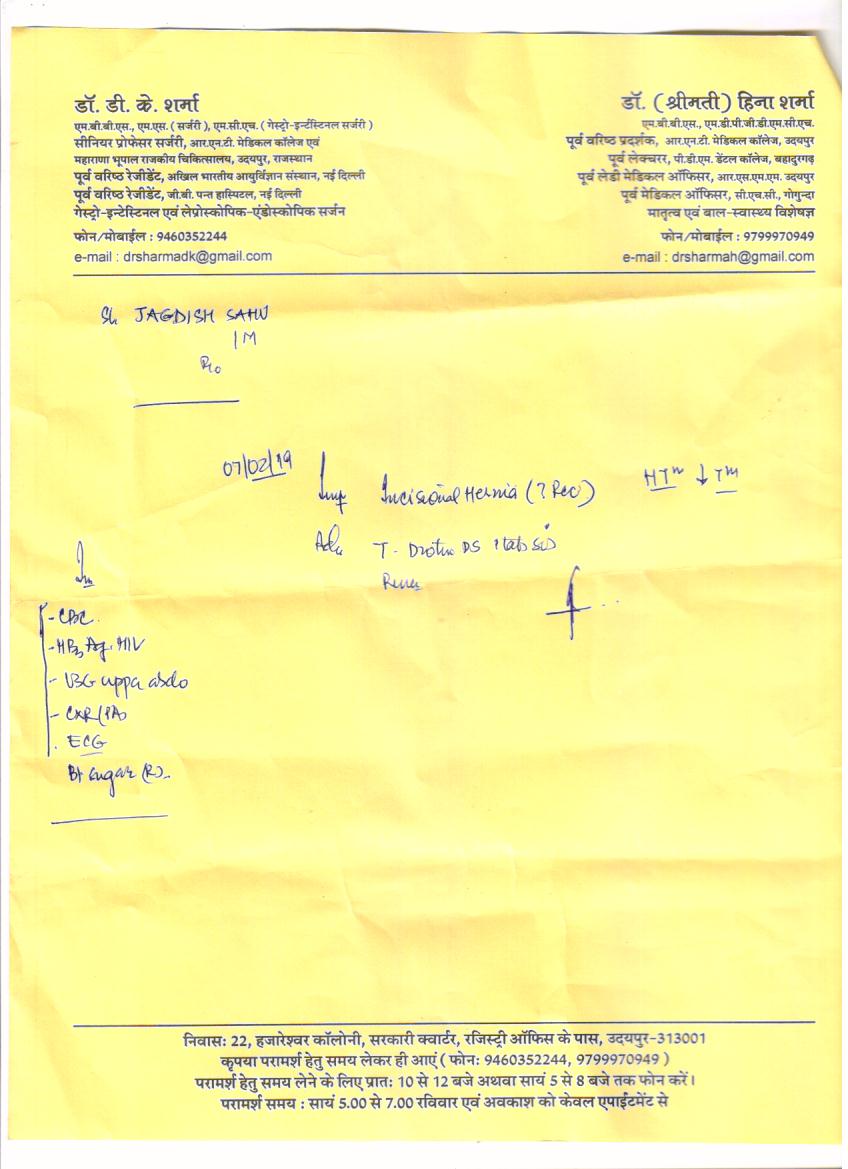 डॉ. डी. के. शर्मा
एम.बी.बी.एस., एम.एस. ( सर्जरी ), एम.सी.एच. ( गेस्ट्रो-इन्टेंस्टिनल सर्जरी )
सीनियर प्रोफेसर सर्जरी, आर.एन.टी. मेडिकल कॉलेज एवं
महाराणा भूपाल राजकीय चिकित्सालय, उदयपुर, राजस्थान
पूर्व वरिष्ठ रेजीडेंट, अखिल भारतीय आयुर्विज्ञान संस्थान, नई दिल्ली
पूर्व वरिष्ठ रेजीडेंट, जी.बी. पन्त हास्पिटल, नई दिल्ली
गेस्ट्रो-इन्टेस्टिनल एवं लेप्रोस्कोपिक-एंडोस्कोपिक सर्जन
फोन/मोबाईल : 9460352244
e-mail : drsharmadk@gmail.com
डॉ. (श्रीमती) हिना शर्मा
एम.बी.बी.एस., एम.डी.पी.जी.डी.एम.सी.एच.
पूर्व वरिष्ठ प्रदर्शक, आर.एन.टी. मेडिकल कॉलेज, उदयपुर
पूर्व लेक्चरर, पी.डी.एम. डेंटल कॉलेज, बहादुरगढ़
पूर्व लेडी मेडिकल ऑफिसर, आर.एस.एम.एम. उदयपुर
पूर्व मेडिकल ऑफिसर, सी.एच.सी., गोगुन्दा
मातृत्व एवं बाल-स्वास्थ्य विशेषज्ञ
फोन/मोबाईल : 9799970949
e-mail : drsharmah@gmail.com
Sh. JAGDISH SAHU
/M
R/o
07/02/19
Imp Incisional Hernia (? Rec)
HTn ↓ Tm
Adv T- Drotin DS 1 tab SOS
- CBC
- HBsAg, HIV
- USG uppa abdo
- CXR (PA)
. ECG
Bl sugar (R)
निवास: 22, हजारेश्वर कॉलोनी, सरकारी क्वार्टर, रजिस्ट्री ऑफिस के पास, उदयपुर-313001
कृपया परामर्श हेतु समय लेकर ही आएं ( फोन: 9460352244, 9799970949 )
परामर्श हेतु समय लेने के लिए प्रात: 10 से 12 बजे अथवा सायं 5 से 8 बजे तक फोन करें।
परामर्श समय : सायं 5.00 से 7.00 रविवार एवं अवकाश को केवल एपाईंटमेंट से